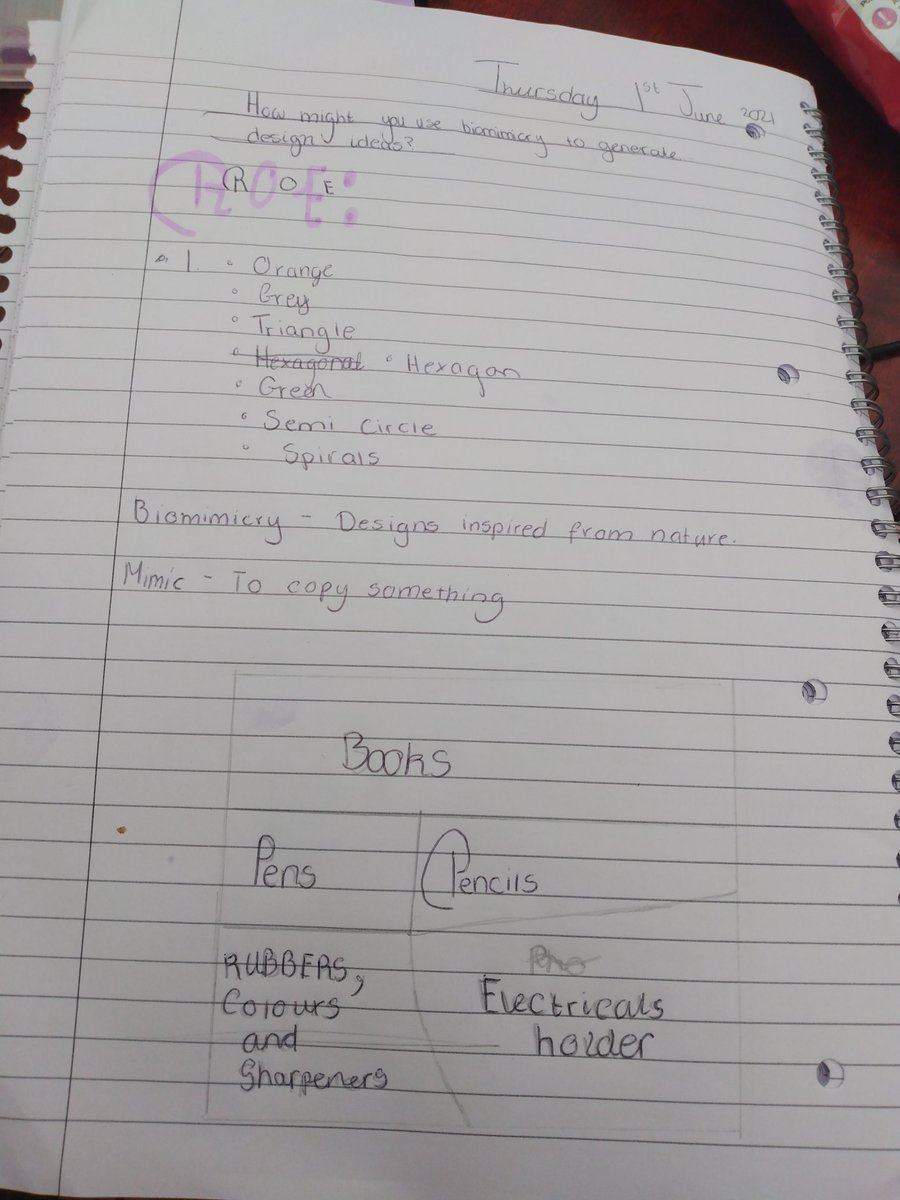 Thursday 1st June 2021
How might you use biomimicry to generate
design ideas?
ROE:
R O E
1. • Orange
• Grey
• Triangle
• Hexagonal • Hexagon
• Green
• Semi Circle
• Spirals
Biomimicry - Designs inspired from nature.
Mimic - To copy something
Books
Pens
Pencils
RUBBERS,
Colours
and
Sharpeners
Electricals
holder